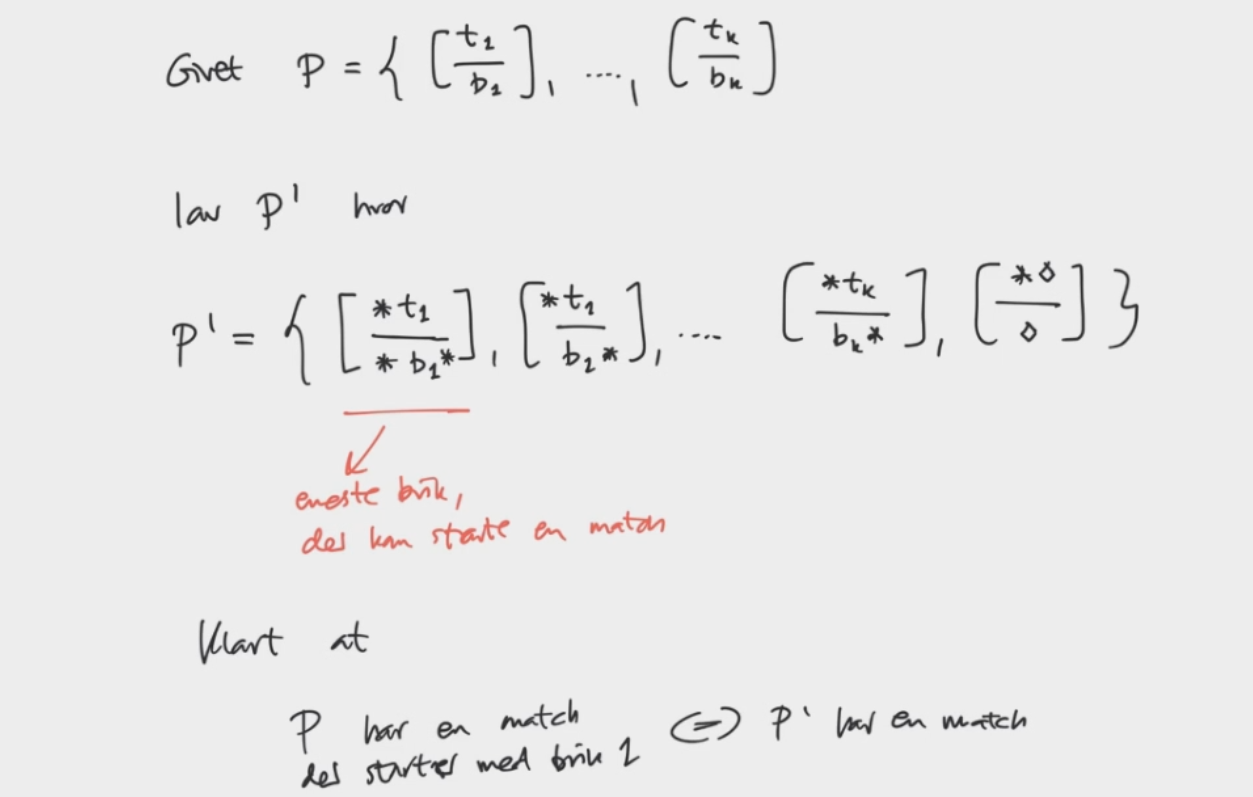 Givet P = { [t₁/b₁], ...., [tₖ/bₖ]
lav P' hvor
P' = { [*t₁/*b₁*], [*t₁/b₂*], .... [*tₖ/bₖ*], [*◇/◇] }
eneste brik,
der kan starte en match
Klart at
P har en match ⇔ P' har en match
der starter med brik 1